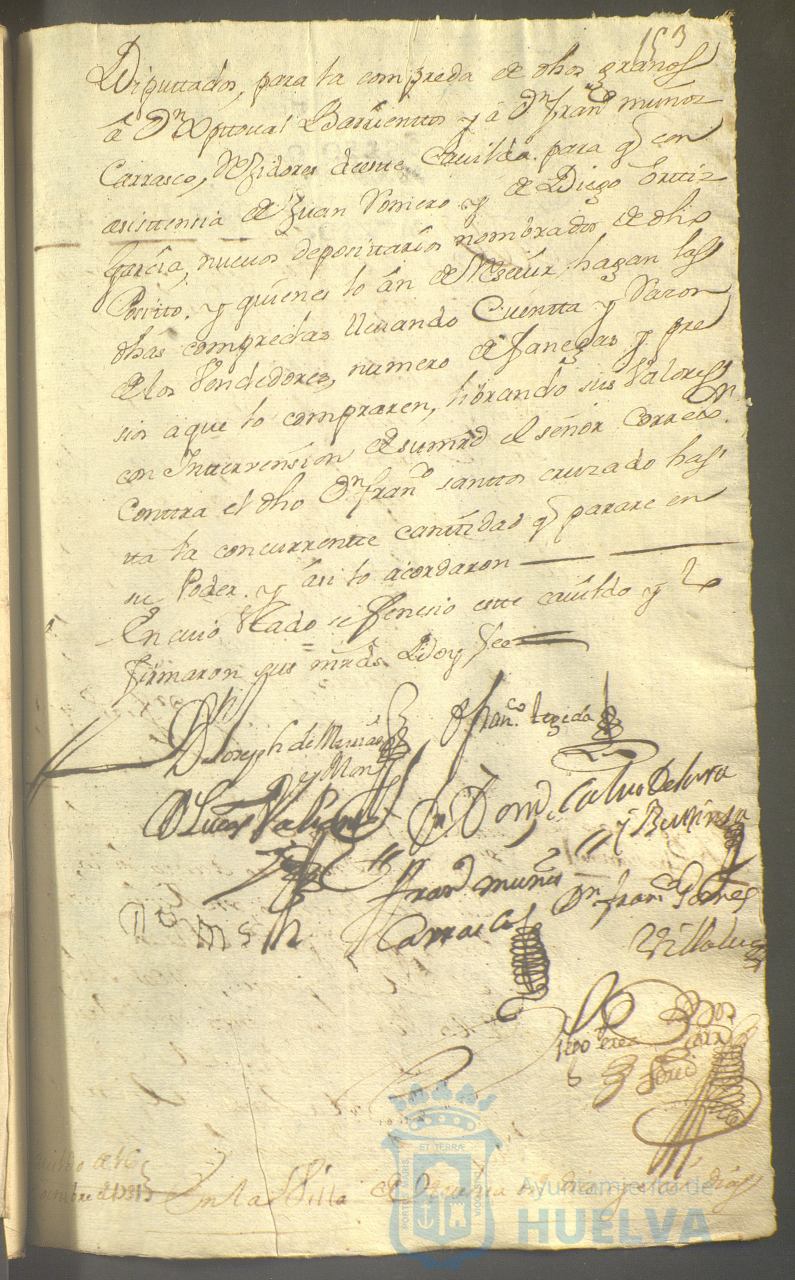 153
Diputtados, para la compreda de dhos granos
â Dn Xpttoval Barrienttos y â Dn Franco muñoz
Carrasco, Rexidores deeste Cavildo para q con
asisttensia de Juan Romero y de Diego Orttiz
Garcia, nuevos deposittarios nombrados de dho
Posito. y quienes lo ân de Resevir, hagan las
dhas compredas llevando Cuentta y Razon
de los Vendedores, numero de fanegas y pre
sios a que lo compraren, librando sus Valores
con Inttervension de sumrd el señor Correxor
Conttra el dho Dn Franco santtos cruzado has
tta la concurrentte canttidad q parare en
su Poder. y âsi lo acordaron
En cuio esttado se fenesio estte cavildo y lo
firmaron sus mrds Doy fee
Dn Joseph de
y
Franco texeda
Dn Domo Calvo Delara
y
Franco muñoz
Carrasco
Dn Franco Gomes
Villalva
En la Villa de Huelva en dias
ET TERRÆ
Ayuntamiento de
HUELVA